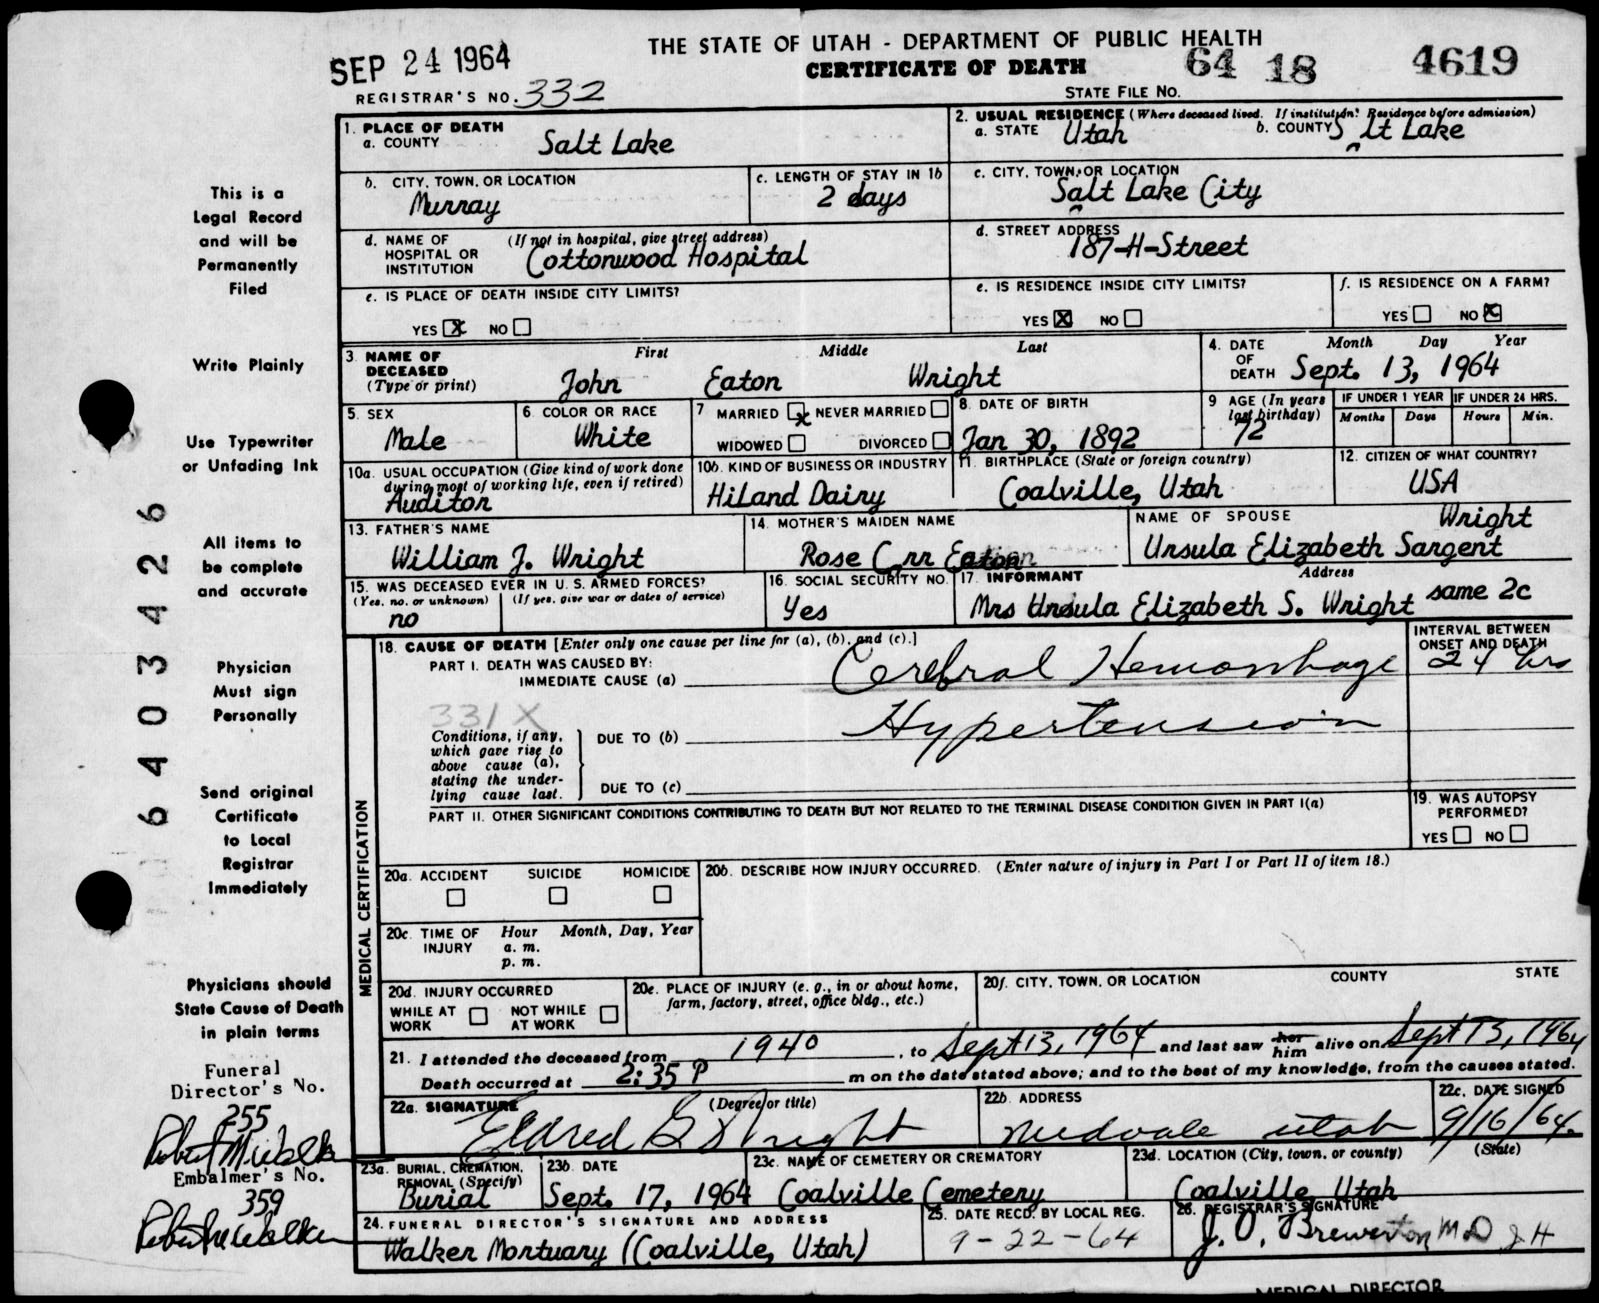 THE STATE OF UTAH - DEPARTMENT OF PUBLIC HEALTH
SEP 24 1964
CERTIFICATE OF DEATH
64 18 4619
REGISTRAR'S NO. 332
STATE FILE NO.
1. PLACE OF DEATH
a. COUNTY Salt Lake
2. USUAL RESIDENCE (Where deceased lived. If institution: Residence before admission)
a. STATE Utah b. COUNTY S lt Lake
b. CITY, TOWN, OR LOCATION
Murray
c. LENGTH OF STAY IN 1b
2 days
c. CITY, TOWN, OR LOCATION
Salt Lake City
d. NAME OF HOSPITAL OR INSTITUTION (If not in hospital, give street address)
Cottonwood Hospital
d. STREET ADDRESS
187-H-Street
e. IS PLACE OF DEATH INSIDE CITY LIMITS?
YES X NO
e. IS RESIDENCE INSIDE CITY LIMITS?
YES X NO
f. IS RESIDENCE ON A FARM?
YES NO X
3. NAME OF DECEASED (Type or print)
First Middle Last
John Eaton Wright
4. DATE OF DEATH
Month Day Year
Sept. 13, 1964
5. SEX
Male
6. COLOR OR RACE
White
7 MARRIED X NEVER MARRIED
WIDOWED DIVORCED
8. DATE OF BIRTH
Jan 30, 1892
9 AGE (In years last birthday)
72
IF UNDER 1 YEAR
Months Days
IF UNDER 24 HRS.
Hours Min.
10a. USUAL OCCUPATION (Give kind of work done during most of working life, even if retired)
Auditor
10b. KIND OF BUSINESS OR INDUSTRY
HiLand Dairy
11. BIRTHPLACE (State or foreign country)
Coalville, Utah
12. CITIZEN OF WHAT COUNTRY?
USA
13. FATHER'S NAME
William J. Wright
14. MOTHER'S MAIDEN NAME
Rose Eaton
NAME OF SPOUSE Wright
Ursula Elizabeth Sargent
15. WAS DECEASED EVER IN U.S. ARMED FORCES?
(Yes, no, or unknown) (If yes, give war or dates of service)
no
16. SOCIAL SECURITY NO.
Yes
17. INFORMANT Address
Mrs Ursula Elizabeth S. Wright same 2c
18. CAUSE OF DEATH [Enter only one cause per line for (a), (b), and (c).]
PART I. DEATH WAS CAUSED BY:
IMMEDIATE CAUSE (a) Cerebral Hemorrhage
INTERVAL BETWEEN ONSET AND DEATH
24 hrs
331X
Conditions, if any, which gave rise to above cause (a), stating the underlying cause last.
DUE TO (b) Hypertension
DUE TO (c)
PART II. OTHER SIGNIFICANT CONDITIONS CONTRIBUTING TO DEATH BUT NOT RELATED TO THE TERMINAL DISEASE CONDITION GIVEN IN PART I(a)
19. WAS AUTOPSY PERFORMED?
YES NO
MEDICAL CERTIFICATION
20a. ACCIDENT SUICIDE HOMICIDE
20b. DESCRIBE HOW INJURY OCCURRED. (Enter nature of injury in Part I or Part II of item 18.)
20c. TIME OF INJURY Hour Month, Day, Year
a. m.
p. m.
20d. INJURY OCCURRED
WHILE AT WORK NOT WHILE AT WORK
20e. PLACE OF INJURY (e. g., in or about home, farm, factory, street, office bldg., etc.)
20f. CITY, TOWN, OR LOCATION COUNTY STATE
21. I attended the deceased from 1940, to Sept 13, 1964 and last saw her him alive on Sept 13, 1964
Death occurred at 2:35 P m on the date stated above; and to the best of my knowledge, from the causes stated.
22a. SIGNATURE (Degree or title)
Eldred G Wright
22b. ADDRESS
Midvale Utah
22c. DATE SIGNED
9/16/64.
23a. BURIAL, CREMATION, REMOVAL (Specify)
Burial
23b. DATE
Sept. 17, 1964
23c. NAME OF CEMETERY OR CREMATORY
Coalville Cemetery
23d. LOCATION (City, town, or county) (State)
Coalville, Utah
24. FUNERAL DIRECTOR'S SIGNATURE AND ADDRESS
Walker Mortuary (Coalville, Utah)
25. DATE RECD. BY LOCAL REG.
9-22-64
26. REGISTRAR'S SIGNATURE
J. O. Brewerton M D J H
MEDICAL DIRECTOR
This is a
Legal Record
and will be
Permanently
Filed
Write Plainly
Use Typewriter
or Unfading Ink
All items to
be complete
and accurate
Physician
Must sign
Personally
Send original
Certificate
to Local
Registrar
Immediately
Physicians should
State Cause of Death
in plain terms
Funeral
Director's No.
255
Embalmer's No.
359
64034226